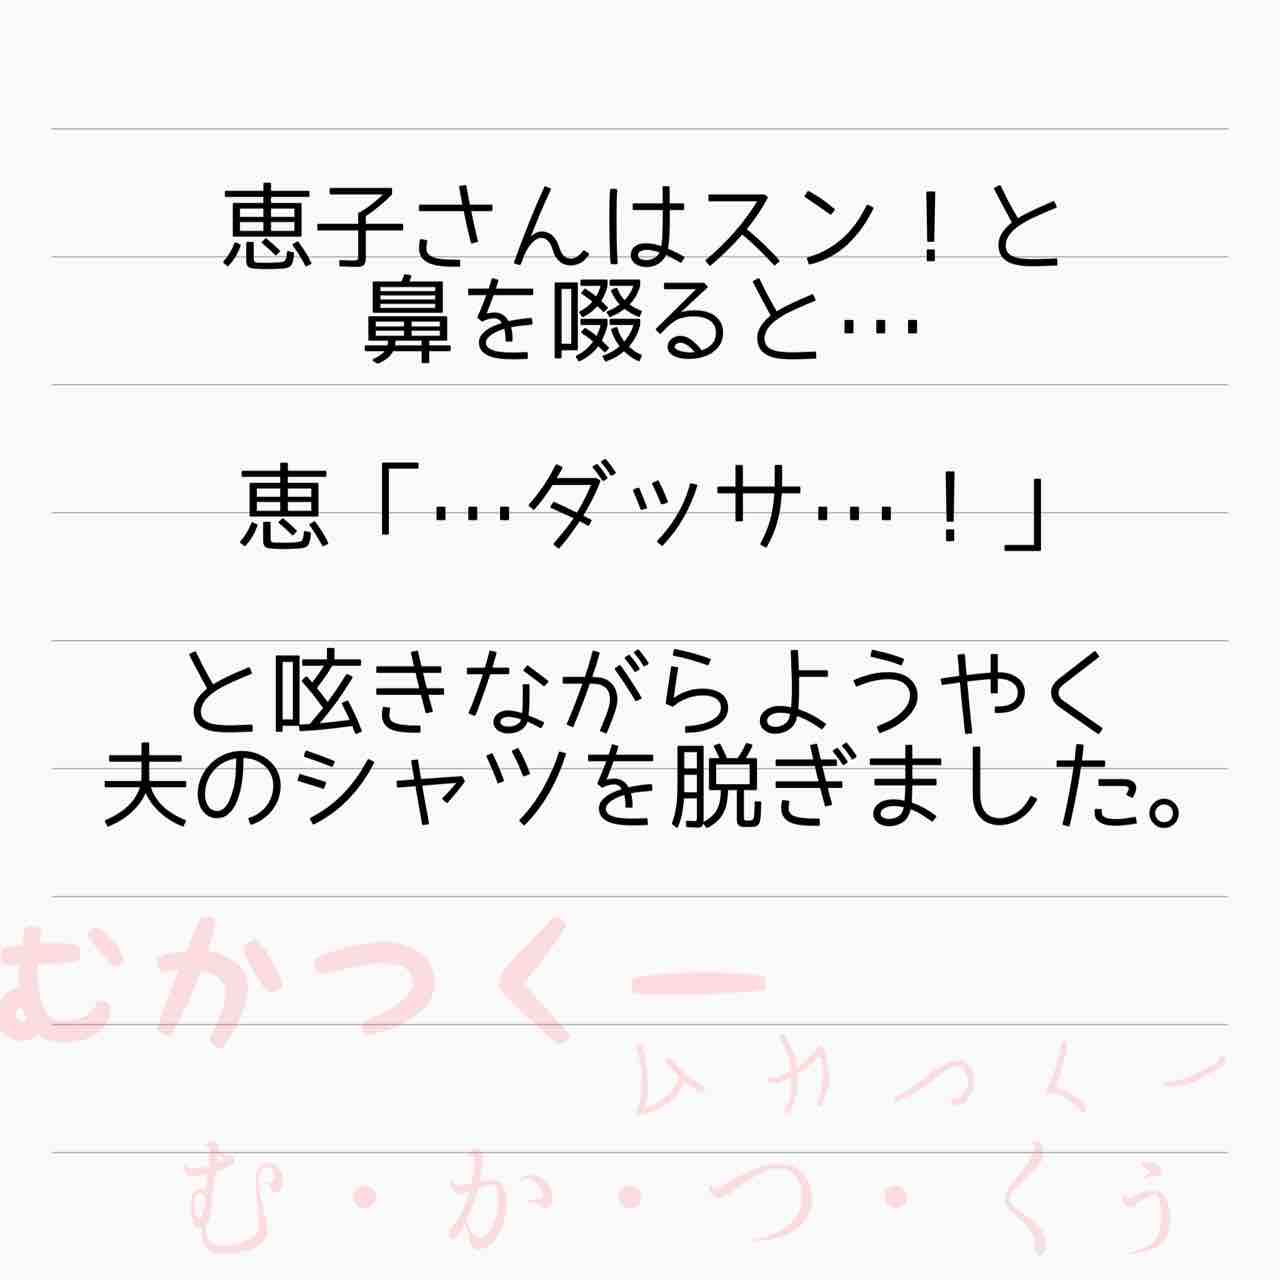 恵子さんはスン！と
鼻を啜ると…
恵「…ダッサ…！」
と呟きながらようやく
夫のシャツを脱ぎました。
むかつくー
ムカつくー
む・か・つ・くぅ